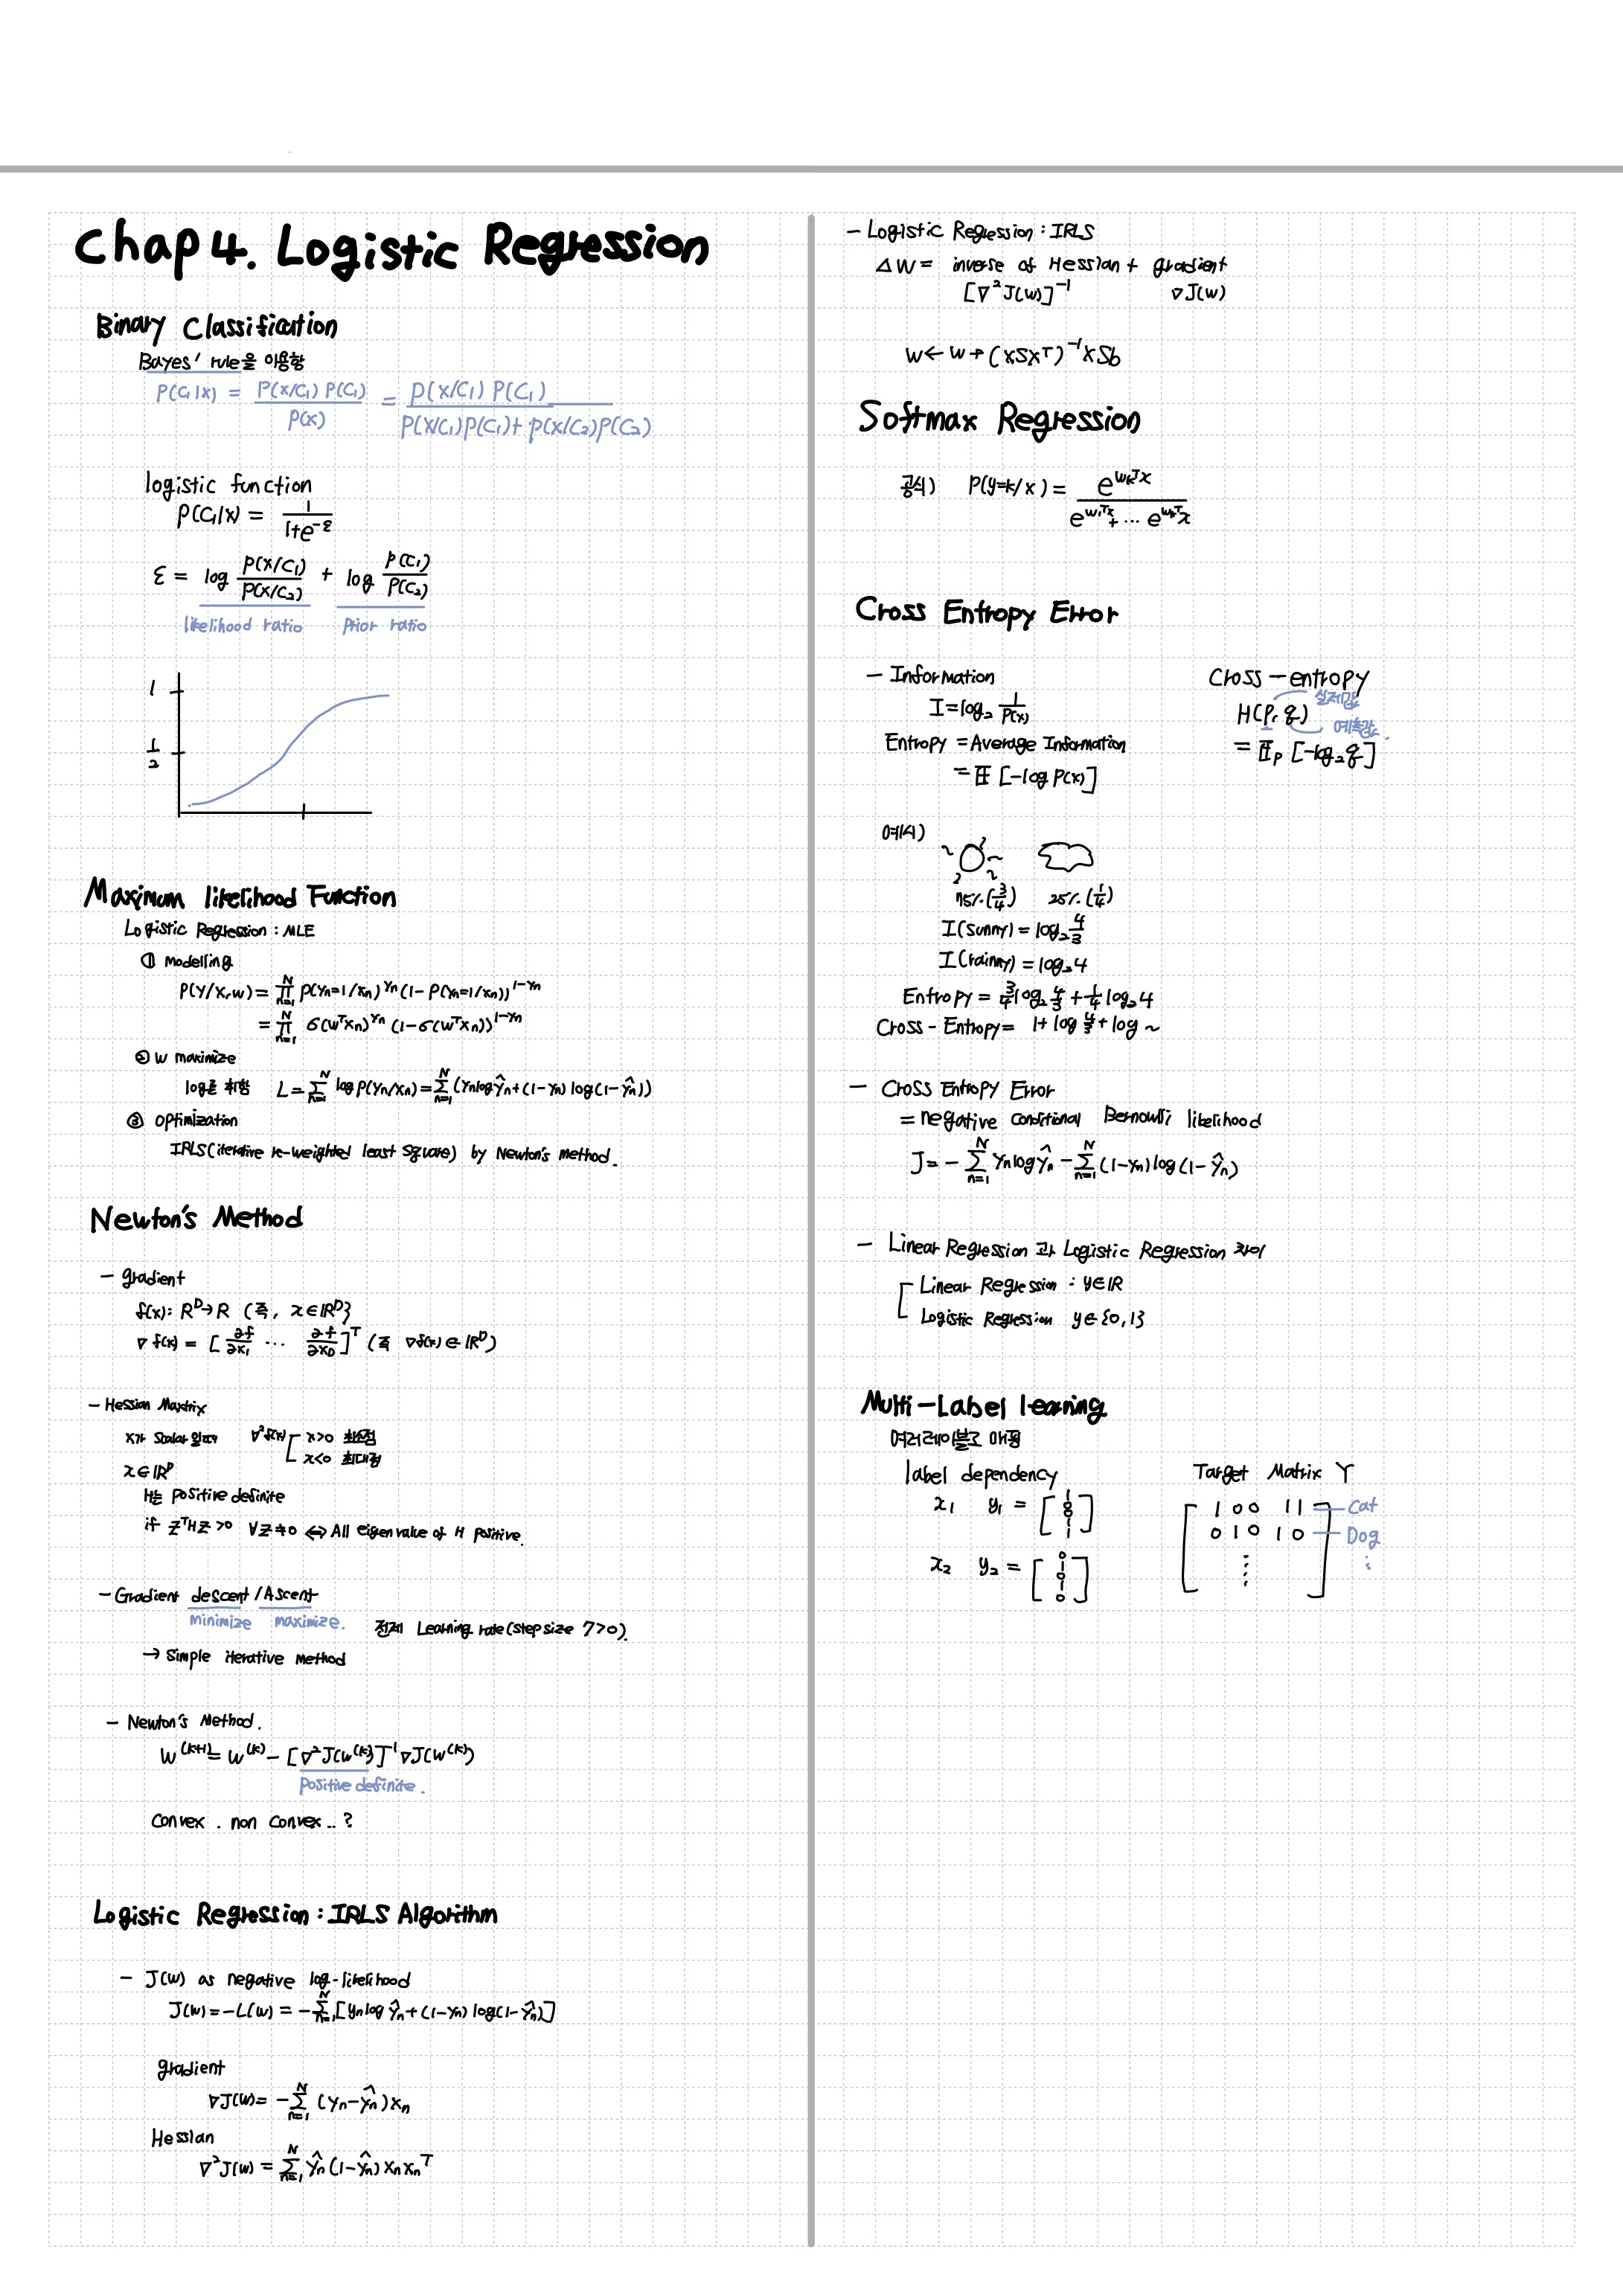 Chap 4. Logistic Regression
Binary Classification
Bayes' rule을 이용함
P(C₁|x) = P(x/C₁) P(C₁) / P(x) = P(x/C₁) P(C₁) / P(x/C₁)P(C₁) + p(x/C₂)P(C₂)
logistic function
P(C₁/x) = 1 / 1+e^-ξ
ξ = log P(x/C₁) / P(x/C₂) + log P(C₁) / P(C₂)
likelihood ratio Prior ratio
1
1/2
Maximum likelihood Function
Logistic Regression : MLE
① modelling
P(y/x,w) = ∏_{n=1}^N P(yn=1/xn)^yn (1-P(yn=1/xn))^1-yn
= ∏_{n=1}^N σ(wᵀxn)^yn (1-σ(wᵀxn))^1-yn
② w maximize
log를 취함 L = ∑_{n=1}^N log P(yn/xn) = ∑_{n=1}^N (yn log ŷn + (1-yn) log(1-ŷn))
③ optimization
IRLS(iterative re-weighted least square) by Newton's method.
Newton's Method
- gradient
f(x): Rᴰ→R (즉, x∈ℝᴰ}
∇f(x) = [∂f/∂x₁ ⋯ ∂f/∂x_D]ᵀ (즉 ∇f(x)∈ℝᴰ)
- Hessian Maxtrix
x가 Scalar 일때 ∇²f(x) [ x>0 최소점
x<0 최대점
x∈ℝᴰ
H는 positive definite
if zᵀHz>0 ∀z≠0 ⇔ All eigen value of H positive.
- Gradient descent / Ascent
minimize maximize. 전제 Learning rate(step size η>0).
→ Simple iterative method
- Newton's Method.
w^(k+1) = w^(k) - [∇²J(w^(k))]⁻¹ ∇J(w^(k))
positive definite.
Convex . non convex..?
Logistic Regression : IRLS Algorithm
- J(w) as negative log-likelihood
J(w) = -L(w) = -∑_{n=1}^N [yn log ŷn + (1-yn) log(1-ŷn)]
gradient
∇J(w) = -∑_{n=1}^N (yn-ŷn)xn
Hessian
∇²J(w) = ∑_{n=1}^N ŷn(1-ŷn) xn xnᵀ
- Logistic Regression : IRLS
ΔW = inverse of Hessian + gradient
[∇²J(w)]⁻¹ ∇J(w)
w ← w + (XSXᵀ)⁻¹XSb
Softmax Regression
공식) P(y=k/x) = e^wkᵀx / e^w₁ᵀx + ⋯ e^wkᵀx
Cross Entropy Error
- Information
I = log₂ 1/P(x)
Entropy = Average Information
= 𝔼 [-log P(x)]
Cross-entropy
실제값
H(p, q)
예측값.
= 𝔼p [-log₂ q]
예시)
75% (3/4) 25% (1/4)
I(sunny) = log₂ 4/3
I(rainny) = log₂ 4
Entropy = 3/4 log₂ 4/3 + 1/4 log₂ 4
Cross-Entropy = 1+ log 4/3 + log ~
- Cross Entropy Error
= negative conditional Bernoulli likelihood
J = -∑_{n=1}^N yn log ŷn - ∑_{n=1}^N (1-yn) log(1-ŷn)
- Linear Regression 과 Logistic Regression 차이
Linear Regression : y∈ℝ
Logistic Regression y∈{0,1}
Multi-Label learning
여러레이블로 매핑
label dependency
x₁ y₁ = [1 0 0 1 1]
x₂ y₂ = [0 1 0 1 0]
Target Matrix Y
1 0 0 1 1 Cat
0 1 0 1 0 Dog
⋮ ⋮